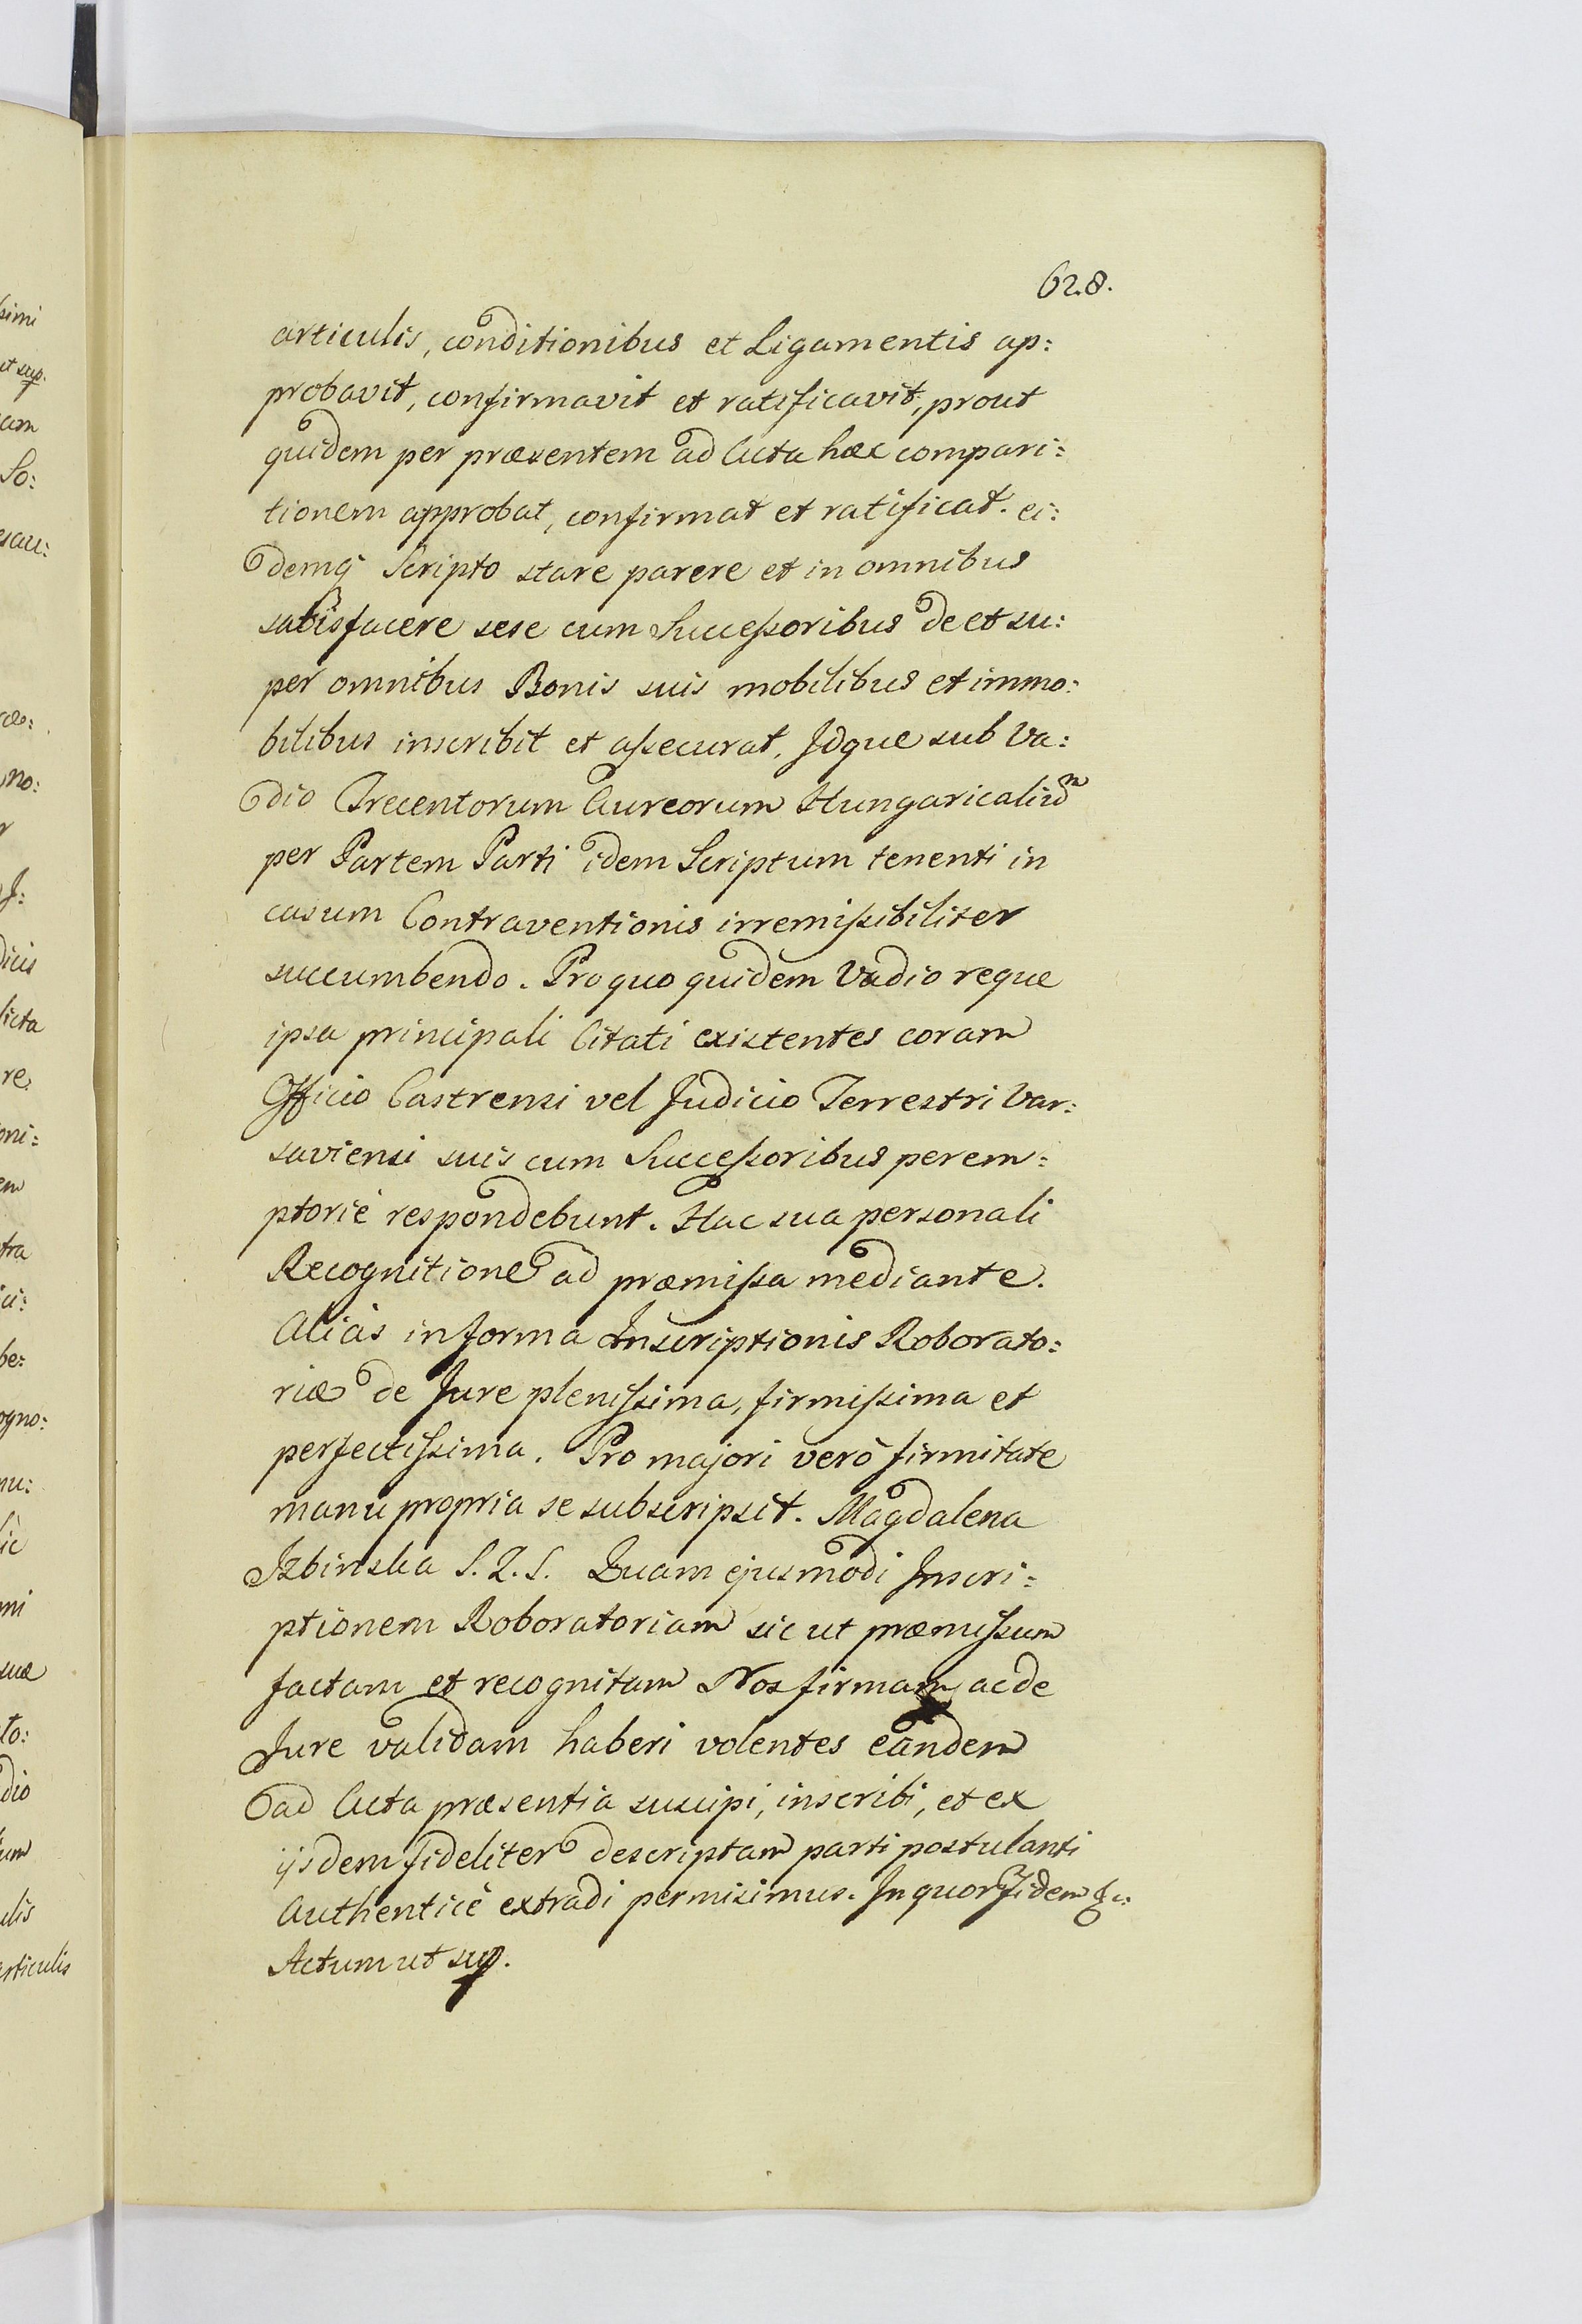 628.
articulis, conditionibus et Ligamentis ap:
probavit, confirmavit et ratificavit, prout
quidem per præsentem ad Acta hæc compari:
tionem approbat, confirmat et ratificat. ei:
demq Scripto stare parere et in omnibus
satisfacere sese cum Successoribus de et su:
per omnibus Bonis suis mobilibus et immo:
bilibus inscribit et assecurat, Idque sub Va:
dio Trecentorum Aureorum Hungaricaliu͞m
per Partem Parti idem Scriptum tenenti in
casum Contraventionis irremissibiliter
succumbendo. Pro quo quidem Vadio reque
ipsa principali Citati existentes coram
Officio Castrensi vel Judicio Terrestri Var:
saviensi suis cum Successoribus perem:
ptoriè respondebunt. Hac sua personali
Recognitione ad præmissa mediante.
Aliàs in forma Inscriptionis Roborato:
riæ de Jure plenissima, firmissima et
perfectissima. Pro majori verò firmitate
manu propria se subscripsit. Magdalena
Izbinska S. Z. S. Quam ejusmodi Inscri:
ptionem Roboratoriam sic ut præmissum
factam et recognitam Nos firmam ac de
Jure validam haberi volentes eandem
ad Acta præsentia suscipi, inscribi, et ex
ijsdem fideliter descriptam parti postulanti
Authenticè extradi permisimus. In quor fidem &c:
Actum ut sup.